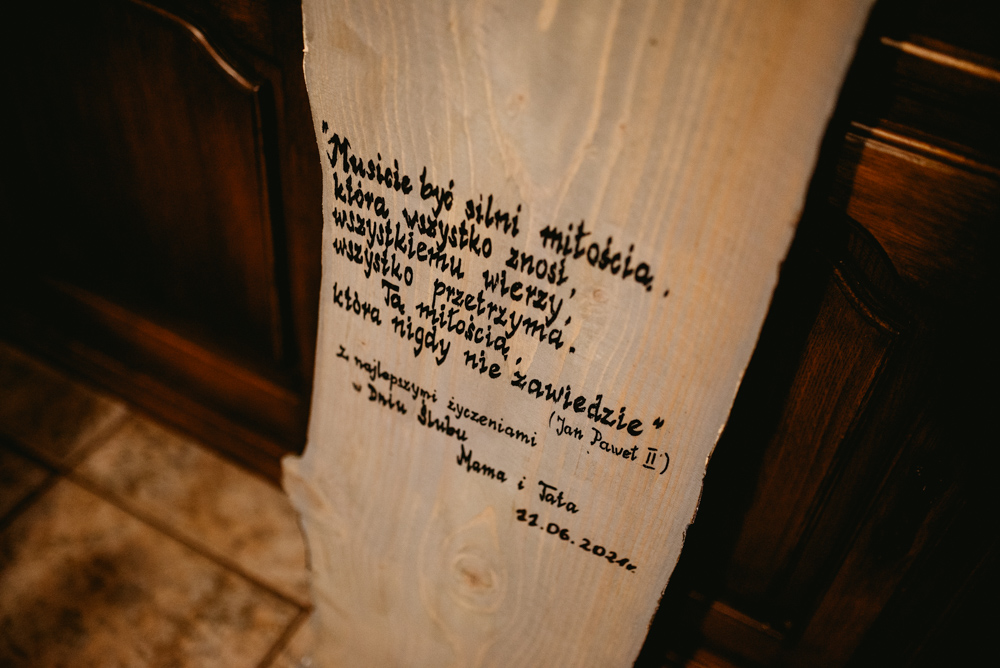 "Musicie być silni miłością.
która wszystko znosi,
wszystkiemu wierzy,
wszystko przetrzyma.
Tą miłością,
która nigdy nie zawiedzie"
(Jan Paweł II)
Z najlepszymi życzeniami
w Dniu Ślubu
Mama i Tata
11.06.2021r.